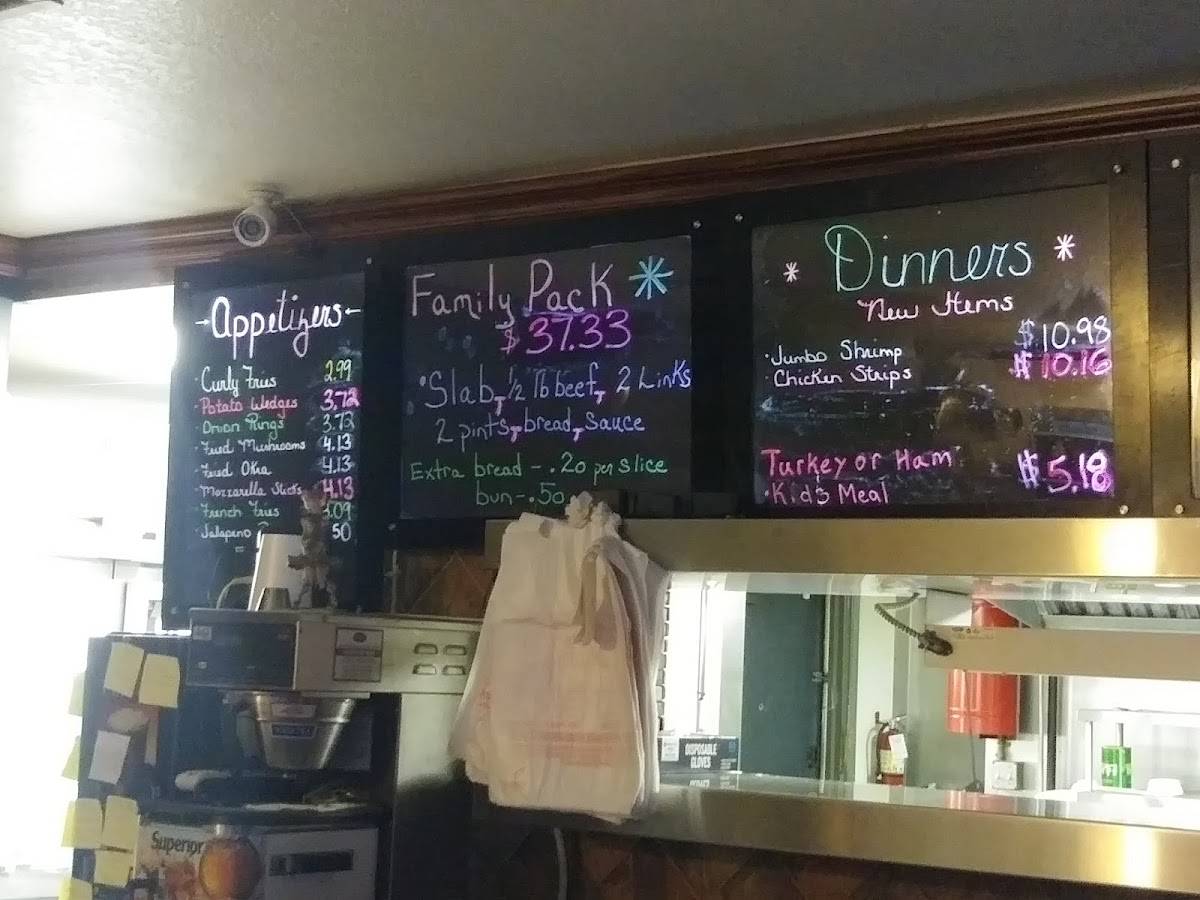 Appetizers
Curly Fries 2.99
Potato Wedges 3.72
Onion Rings 3.72
Fried Mushrooms 4.13
Fried Okra 4.13
Mozzarella Sticks 4.13
French Fries 3.09
Jalapeno 50
Family Pack
$37.33
Slab, 1/2 lb beef, 2 Links
2 pints, bread, sauce
Extra bread - .20 per slice
bun - .50
Dinners
New Items
Jumbo Shrimp $10.98
Chicken Strips $10.16
Turkey or Ham
Kid's Meal $5.18
DISPOSABLE
GLOVES
Superior